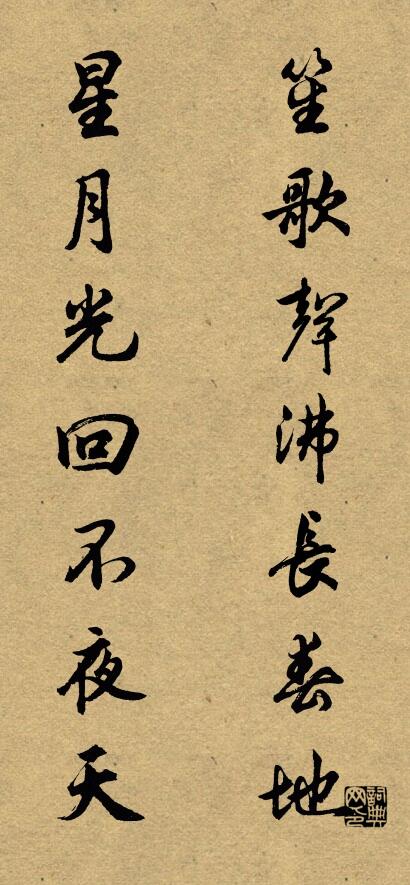 笙歌聲沸長春地
星月光回不夜天
詞典網